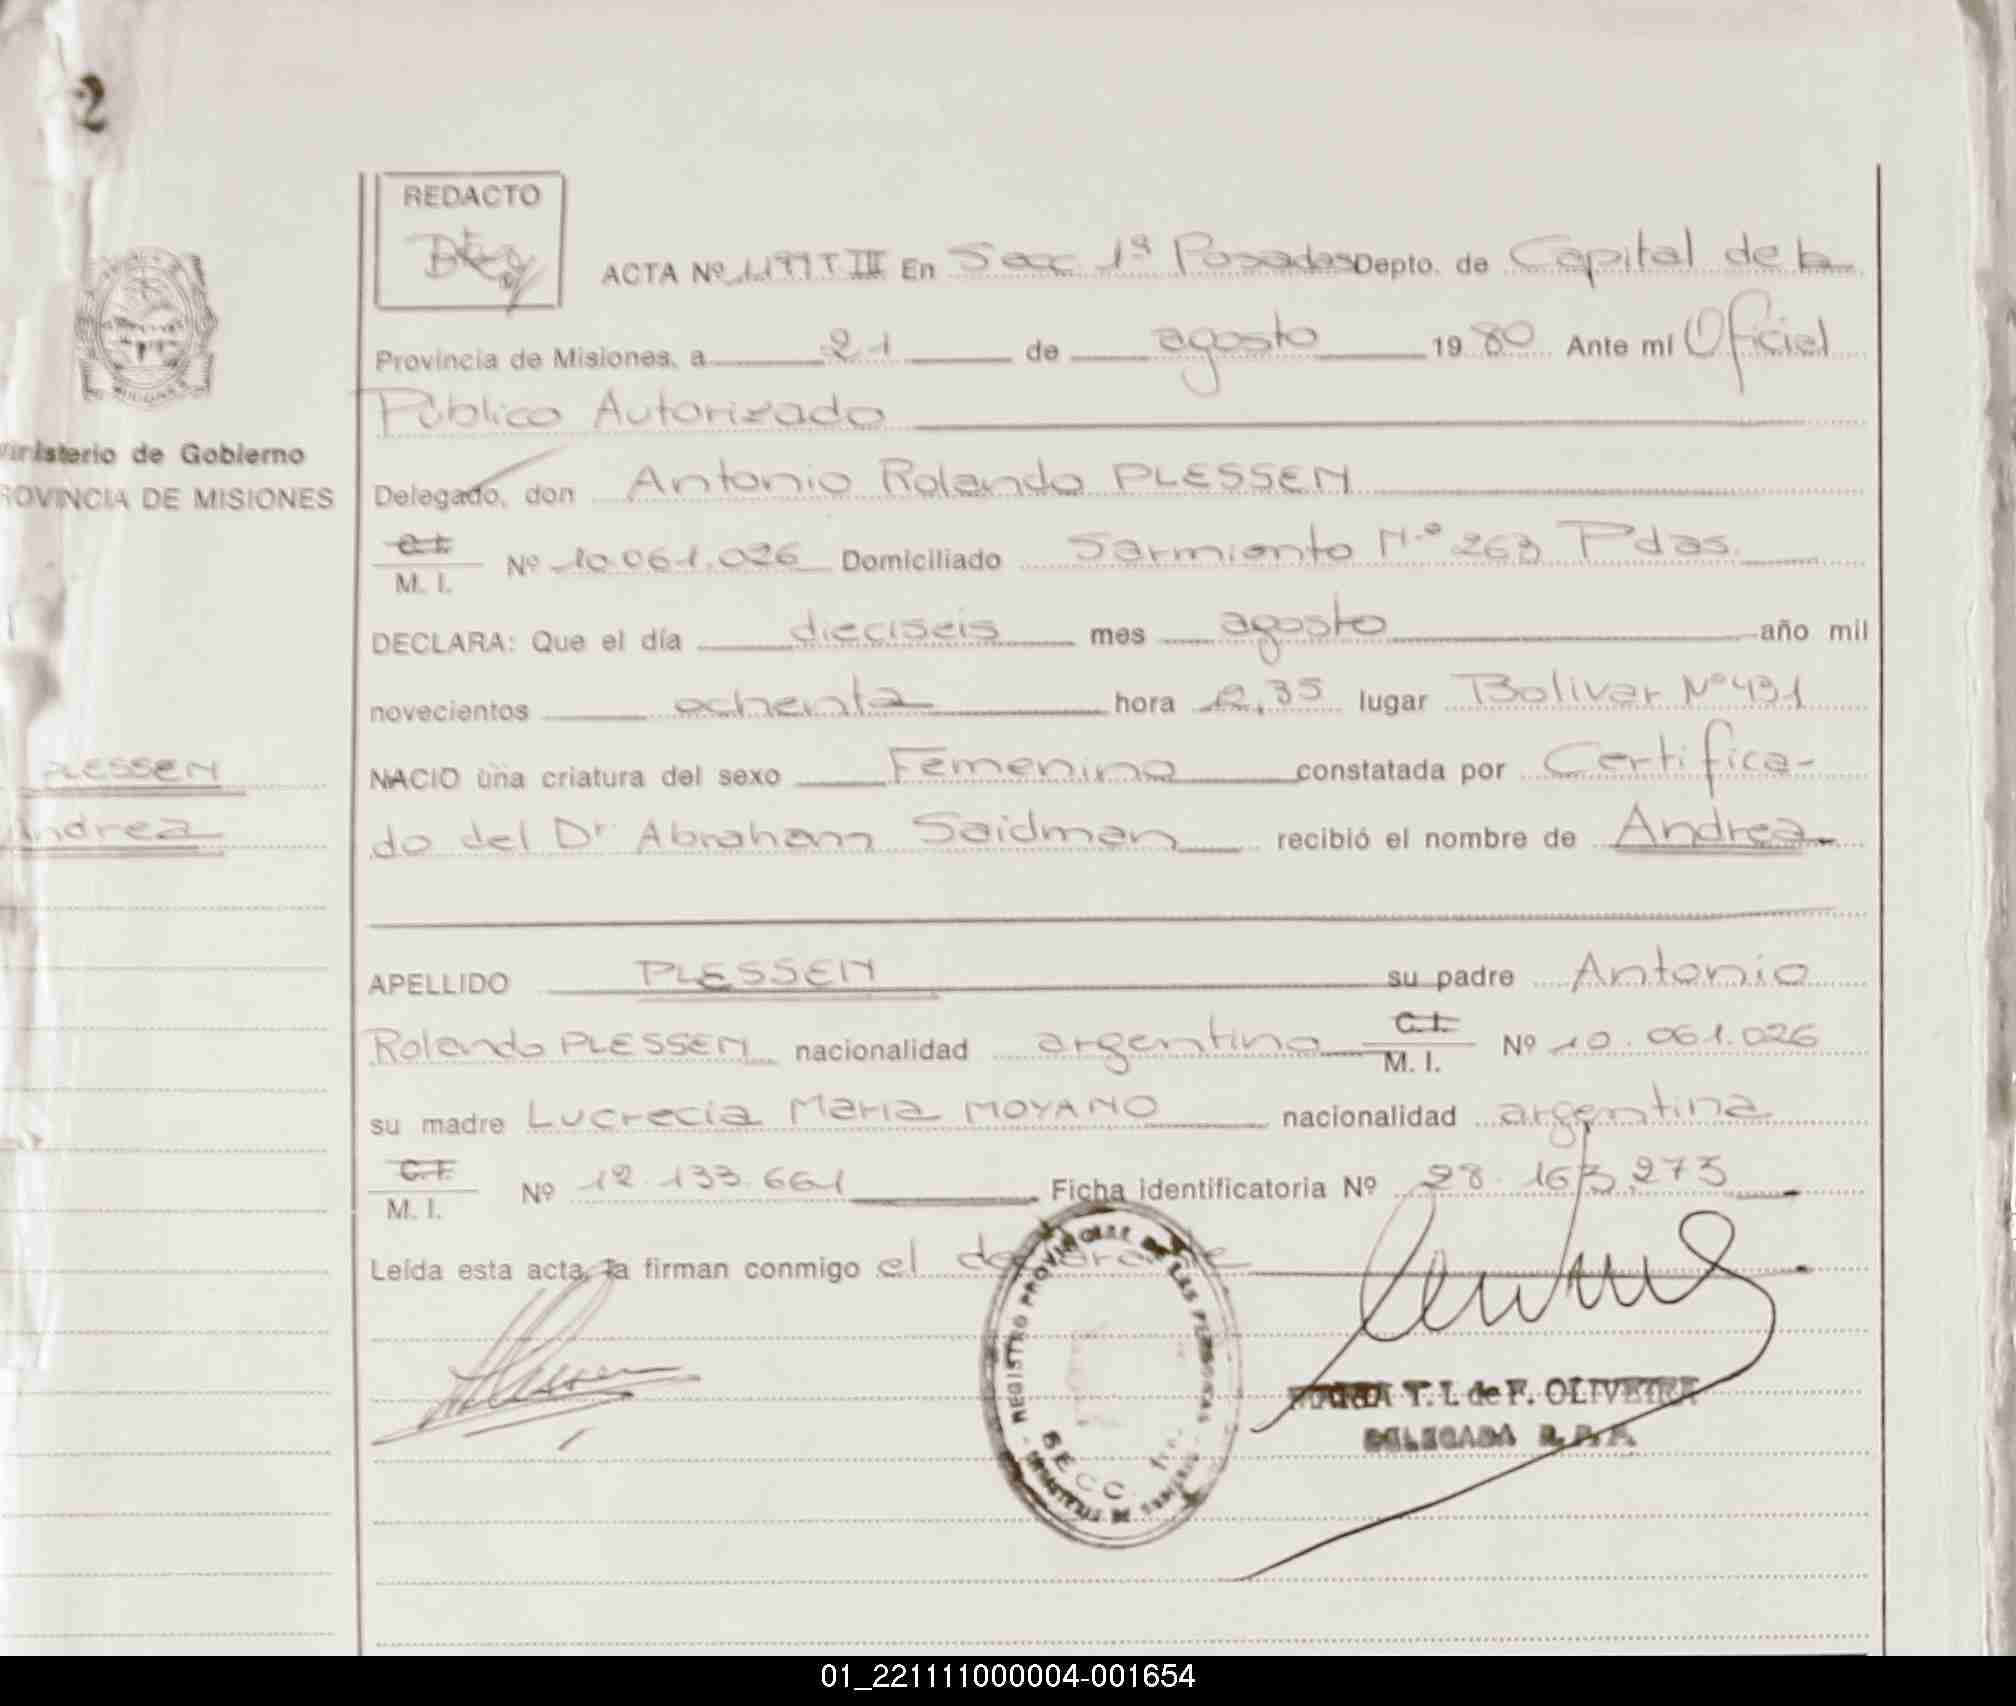 2
REDACTO
ACTA Nº 1.197 T III En Secc 1ª Posadas Depto. de Capital de la
Provincia de Misiones, a 21 de agosto 1980 Ante mí Oficial
Público Autorizado
Ministerio de Gobierno
PROVINCIA DE MISIONES
Delegado, don Antonio Rolando PLESSEN
C.I.
M. I. Nº 10.061.026 Domiciliado Sarmiento N.º 263 Pdas.
DECLARA: Que el día dieciseis mes agosto año mil
novecientos ochenta hora 12,35 lugar Bolivar Nº 431
PLESSEN
Andrea
NACIO una criatura del sexo Femenino constatada por Certifica-
do del Dr Abraham Saidman recibió el nombre de Andrea
APELLIDO PLESSEN su padre Antonio
Rolando PLESSEN nacionalidad argentino C.I. M. I. Nº 10.061.026
su madre Lucrecia Maria MOYANO nacionalidad argentina
C.I.
M. I. Nº 12.133.661 Ficha identificatoria Nº 28.163.273
Leída esta acta, la firman conmigo el declarante
REGISTRO PROVINCIAL DE LAS PERSONAS - MISIONES
SECC. 1ra.
MARIA T. I. de F. OLIVEIRA
DELEGADA R. P. P.
01_221111000004-001654